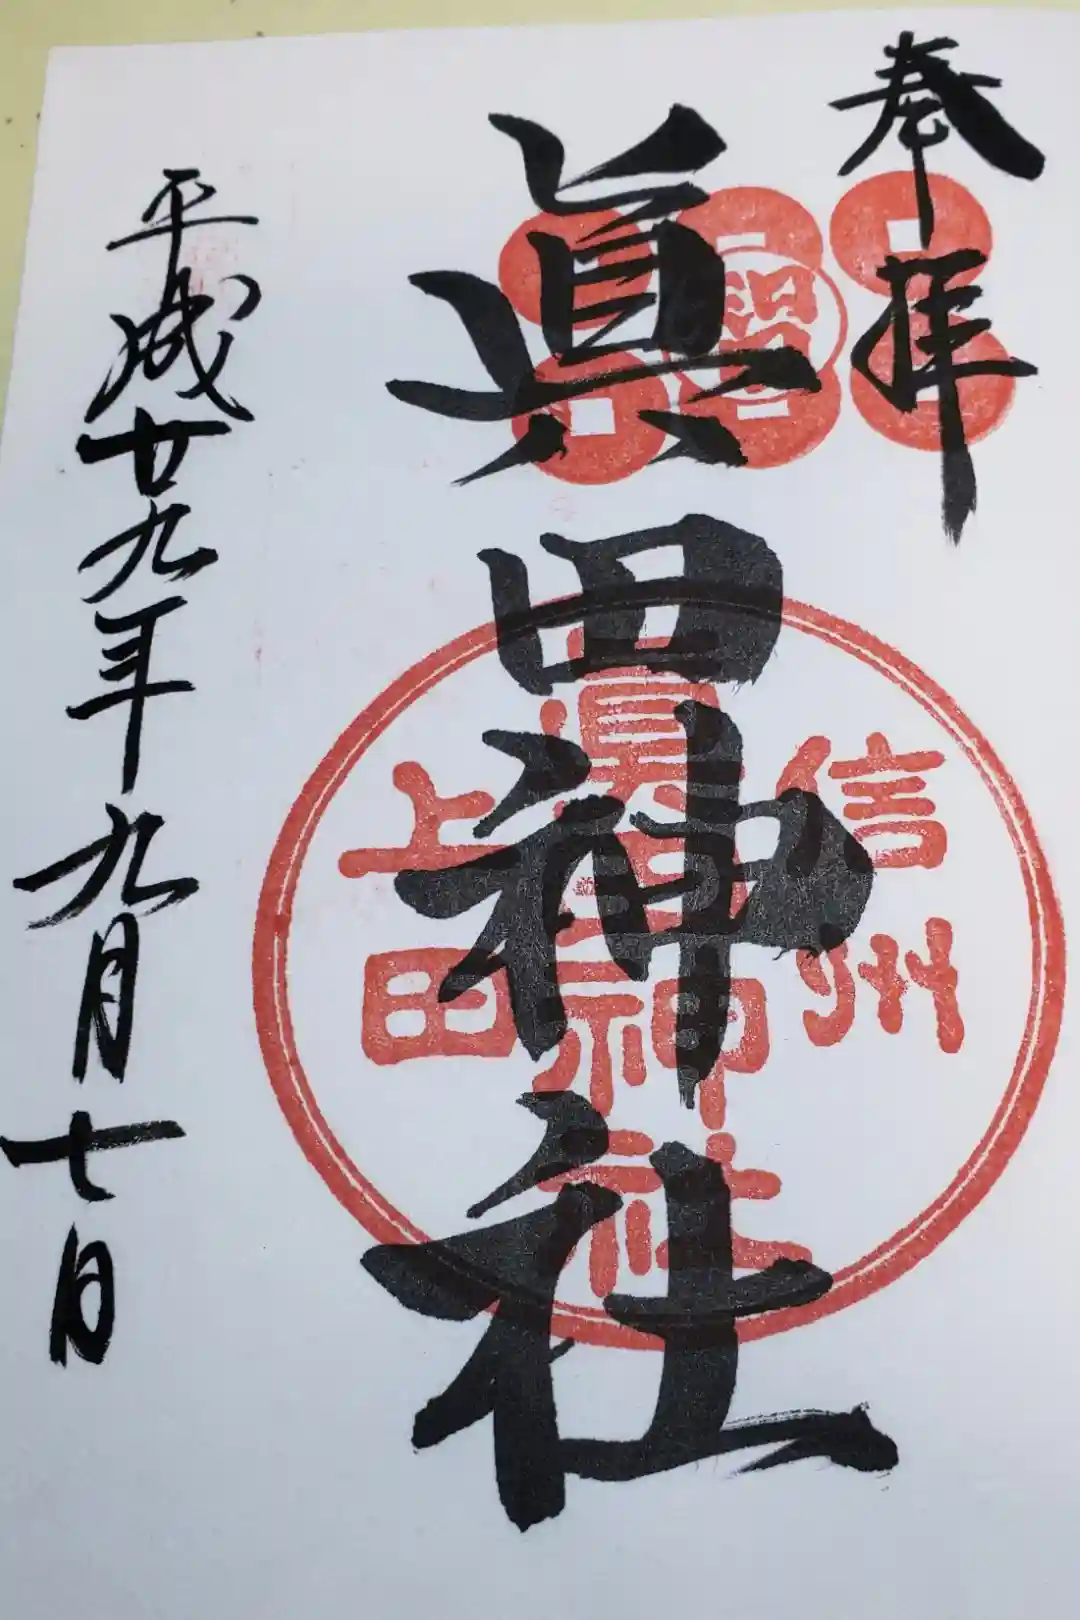 奉拝
眞田神社
信州
眞田神社
上田
平成廿九年九月十日